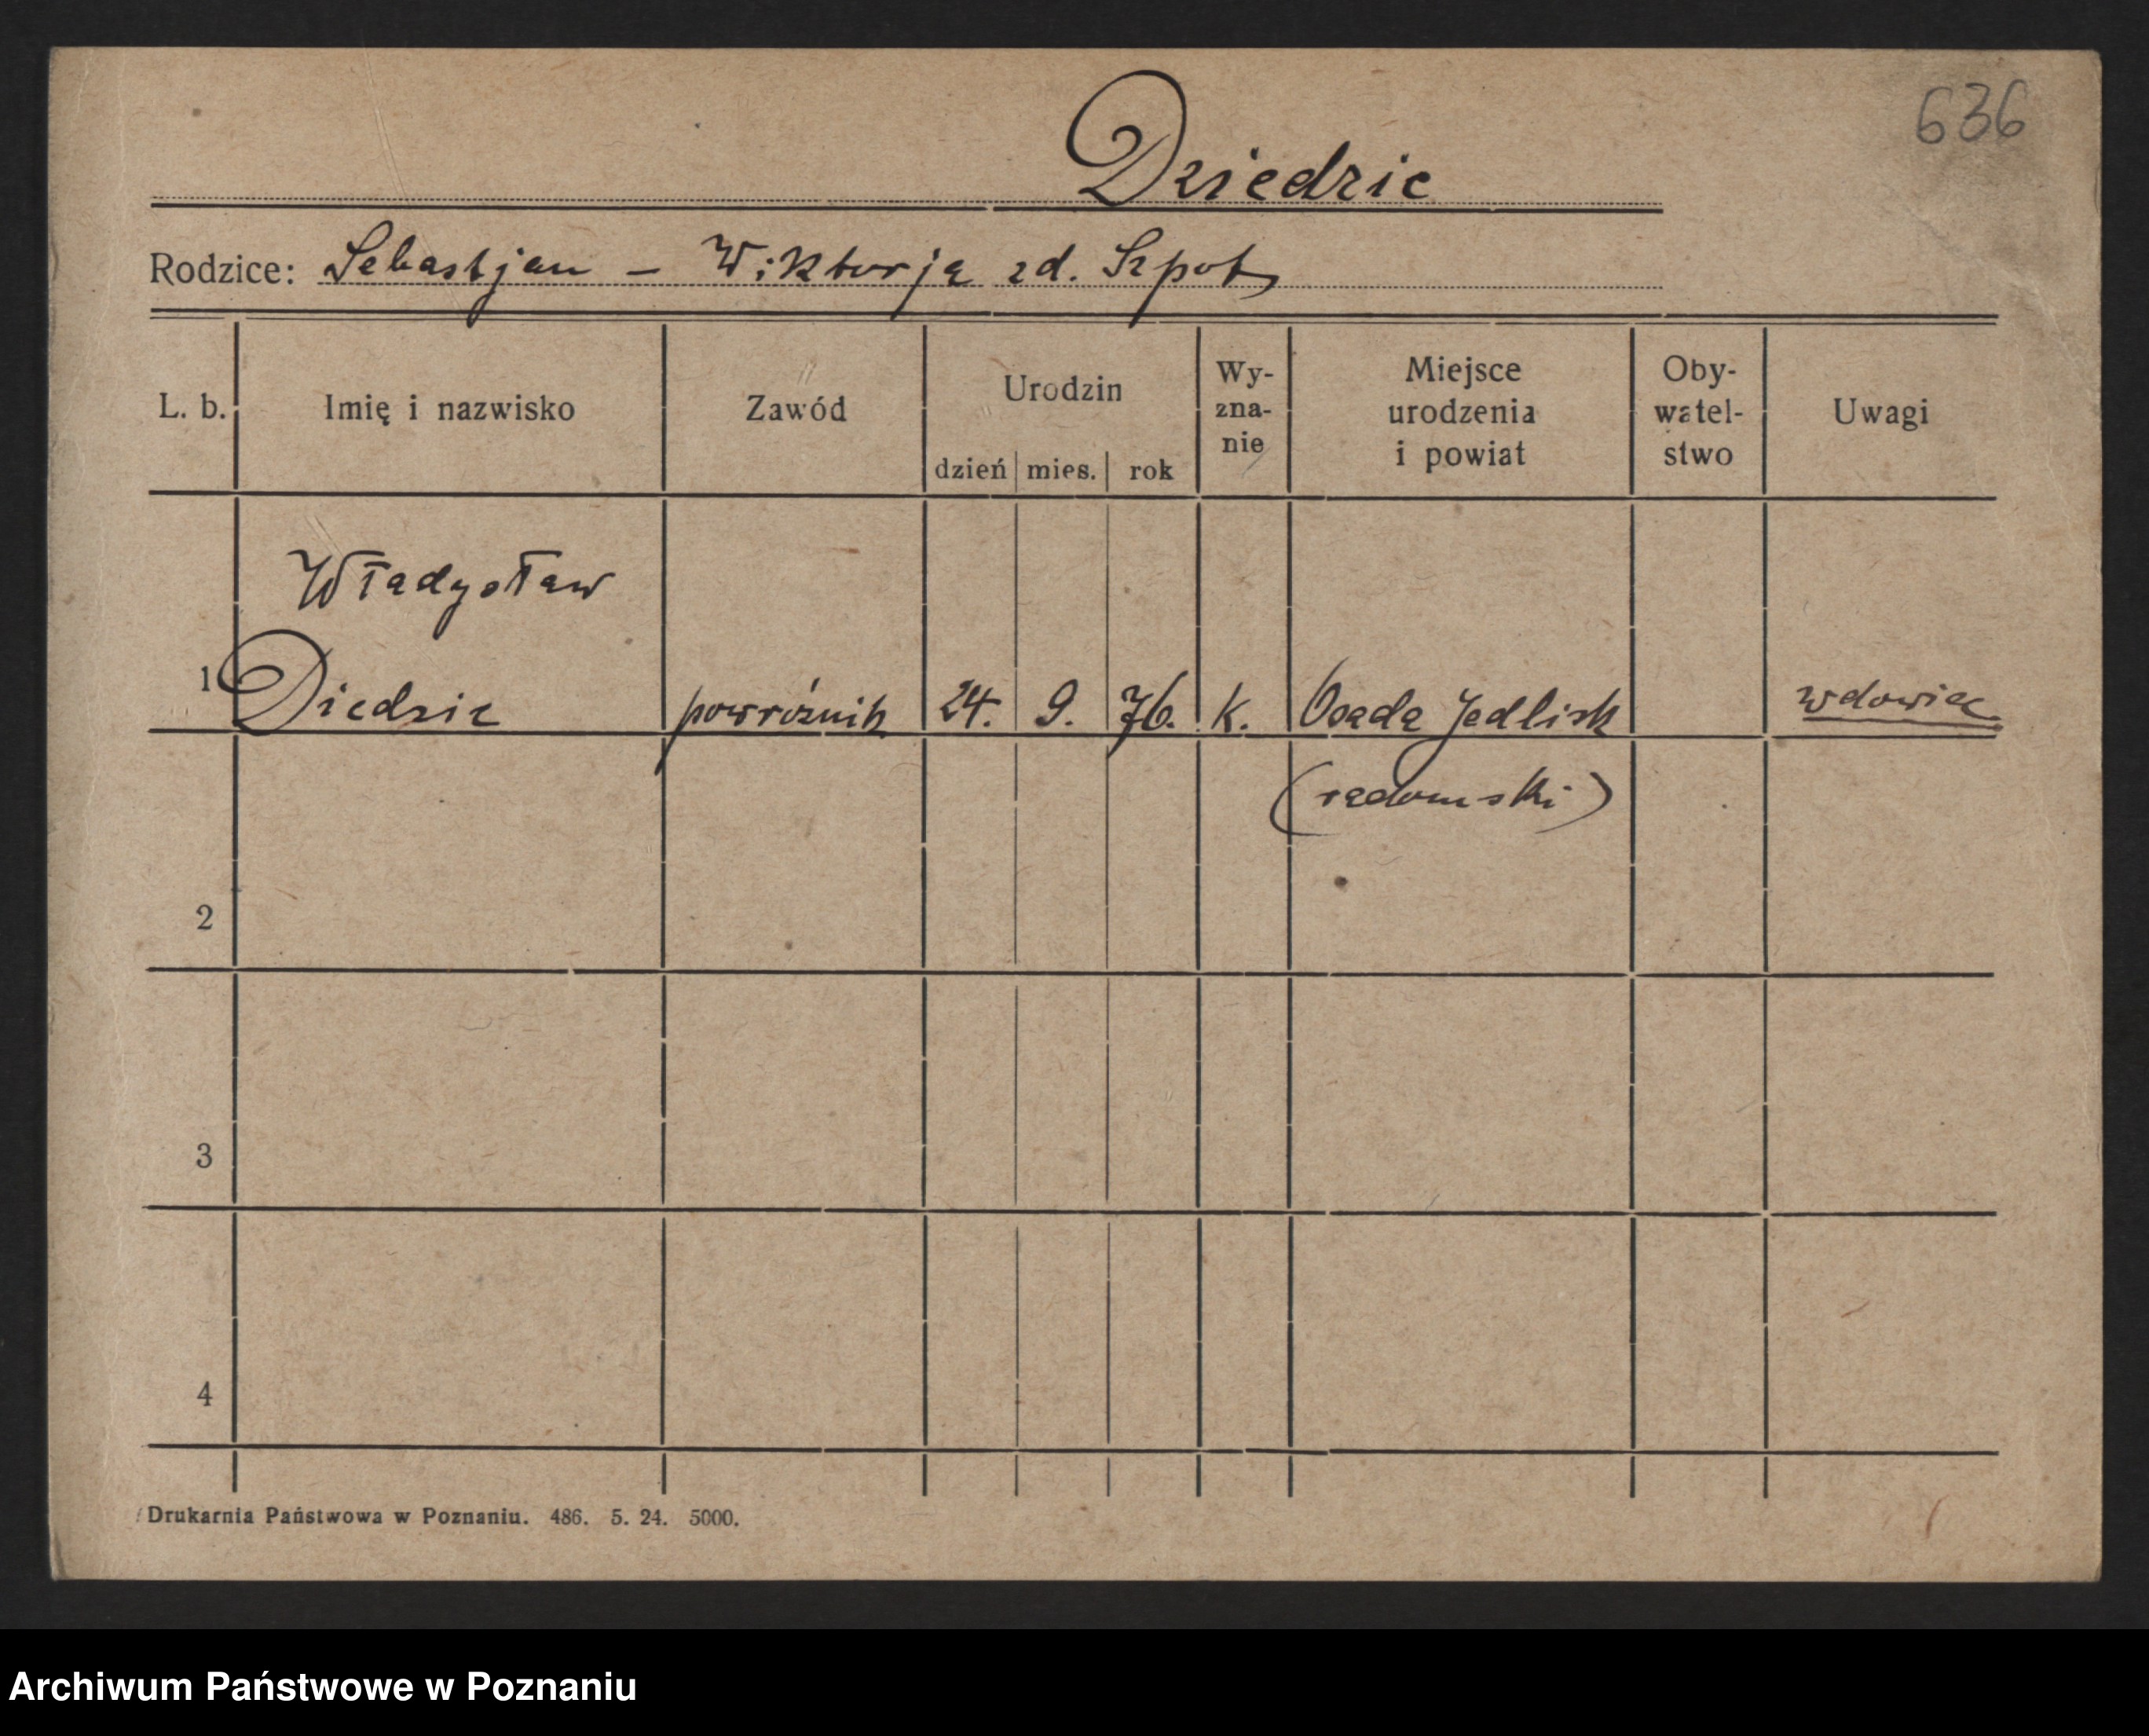 636
Dziedzic
Rodzice: Sebastjan – Wiktorja zd. Szpot
L. b. Imię i nazwisko Zawód Urodzin dzień mies. rok Wy-zna-nie Miejsce urodzenia i powiat Oby-watel-stwo Uwagi
Władysław
1 Diedzic powróźnik 24. 9. 76. k. Osada Jedlisk wdowiec
(radomski)
2
3
4
Drukarnia Państwowa w Poznaniu. 486. 5. 24. 5000.
Archiwum Państwowe w Poznaniu